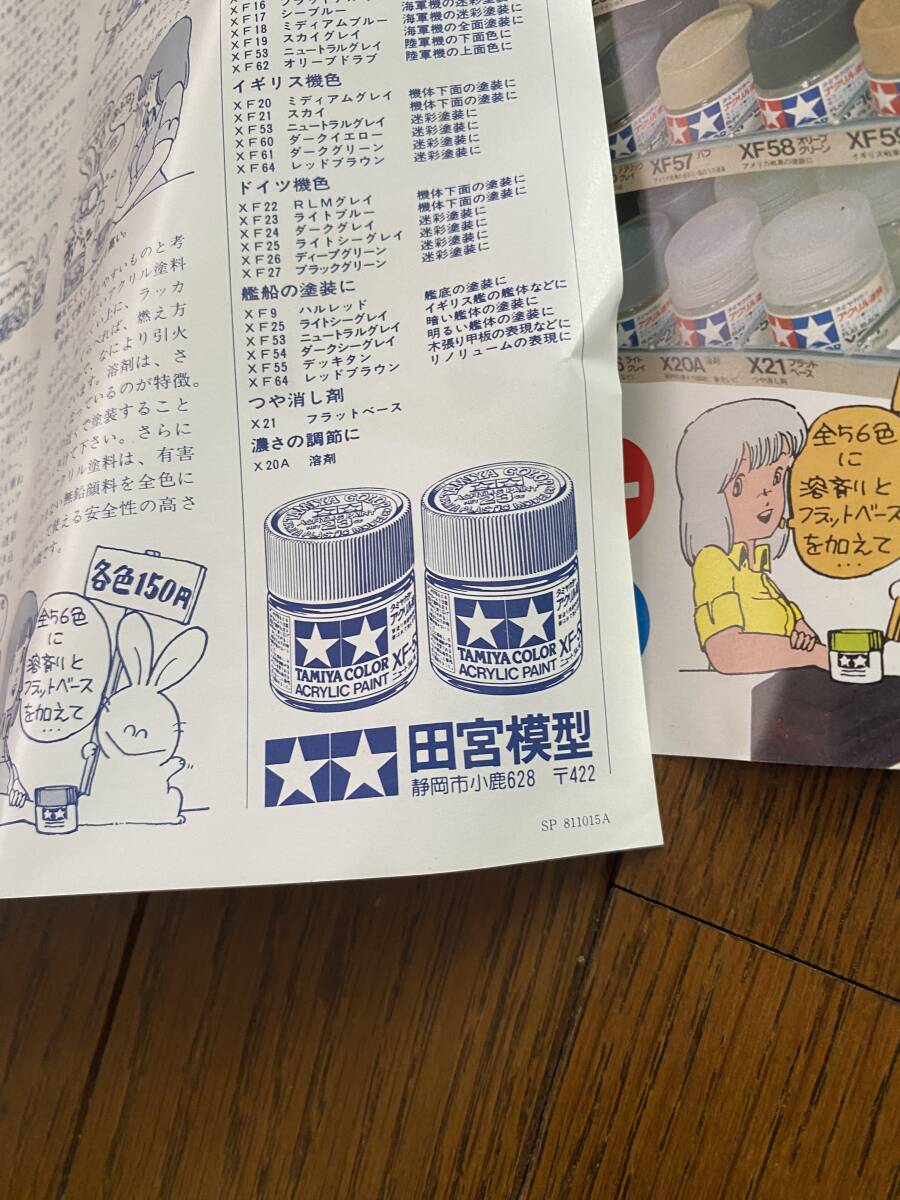 XF16
XF17 シーブルー 海軍機の迷彩塗装に
XF18 ミディアムブルー 海軍機の迷彩塗装に
XF19 スカイグレイ 海軍機の全面塗装に
XF53 ニュートラルグレイ 陸軍機の下面色に
XF62 オリーブドラブ 陸軍機の上面色に
イギリス機色
XF20 ミディアムグレイ 機体下面の塗装に
XF21 スカイ 機体下面の塗装に
XF53 ニュートラルグレイ 迷彩塗装に
XF60 ダークイエロー 迷彩塗装に
XF61 ダークグリーン 迷彩塗装に
XF64 レッドブラウン 迷彩塗装に
ドイツ機色
XF22 RLMグレイ 機体下面の塗装に
XF23 ライトブルー 機体下面の塗装に
XF24 ダークグレイ 迷彩塗装に
XF25 ライトシーグレイ 迷彩塗装に
XF26 ディープグリーン 迷彩塗装に
XF27 ブラックグリーン 迷彩塗装に
艦船の塗装に
XF9 ハルレッド 艦底の塗装に
XF25 ライトシーグレイ イギリス艦の艦体などに
XF53 ニュートラルグレイ 暗い艦体の塗装に
XF54 ダークシーグレイ 明るい艦体の塗装に
XF55 デッキタン 木張り甲板の表現などに
XF64 レッドブラウン リノリュームの表現に
つや消し剤
X21 フラットベース
濃さの調節に
X20A 溶剤
やすいものと考
アクリル塗料
上に、ラッカ
れば、燃え方
なにより引火
ます。溶剤は、さ
っているのが特徴。
で塗装すること
けて下さい。さらに
クリル塗料は、有害
ない無鉛顔料を全色に
使える安全性の高さ
です。
各色150円
全56色
に
溶剤と
フラットベース
を加えて
…
TAMIYA COLOR
ACRYLIC PAINT
XF-5
TAMIYA COLOR
ACRYLIC PAINT
XF-5
田宮模型
静岡市小鹿628 〒422
SP 811015A
XF57 バフ
XF58 オリーブグリーン
アメリカ戦車の塗装に
XF59
X20A 溶剤
X21 フラットベース
つや消し剤
全56色
に
溶剤と
フラットベース
を加えて
…